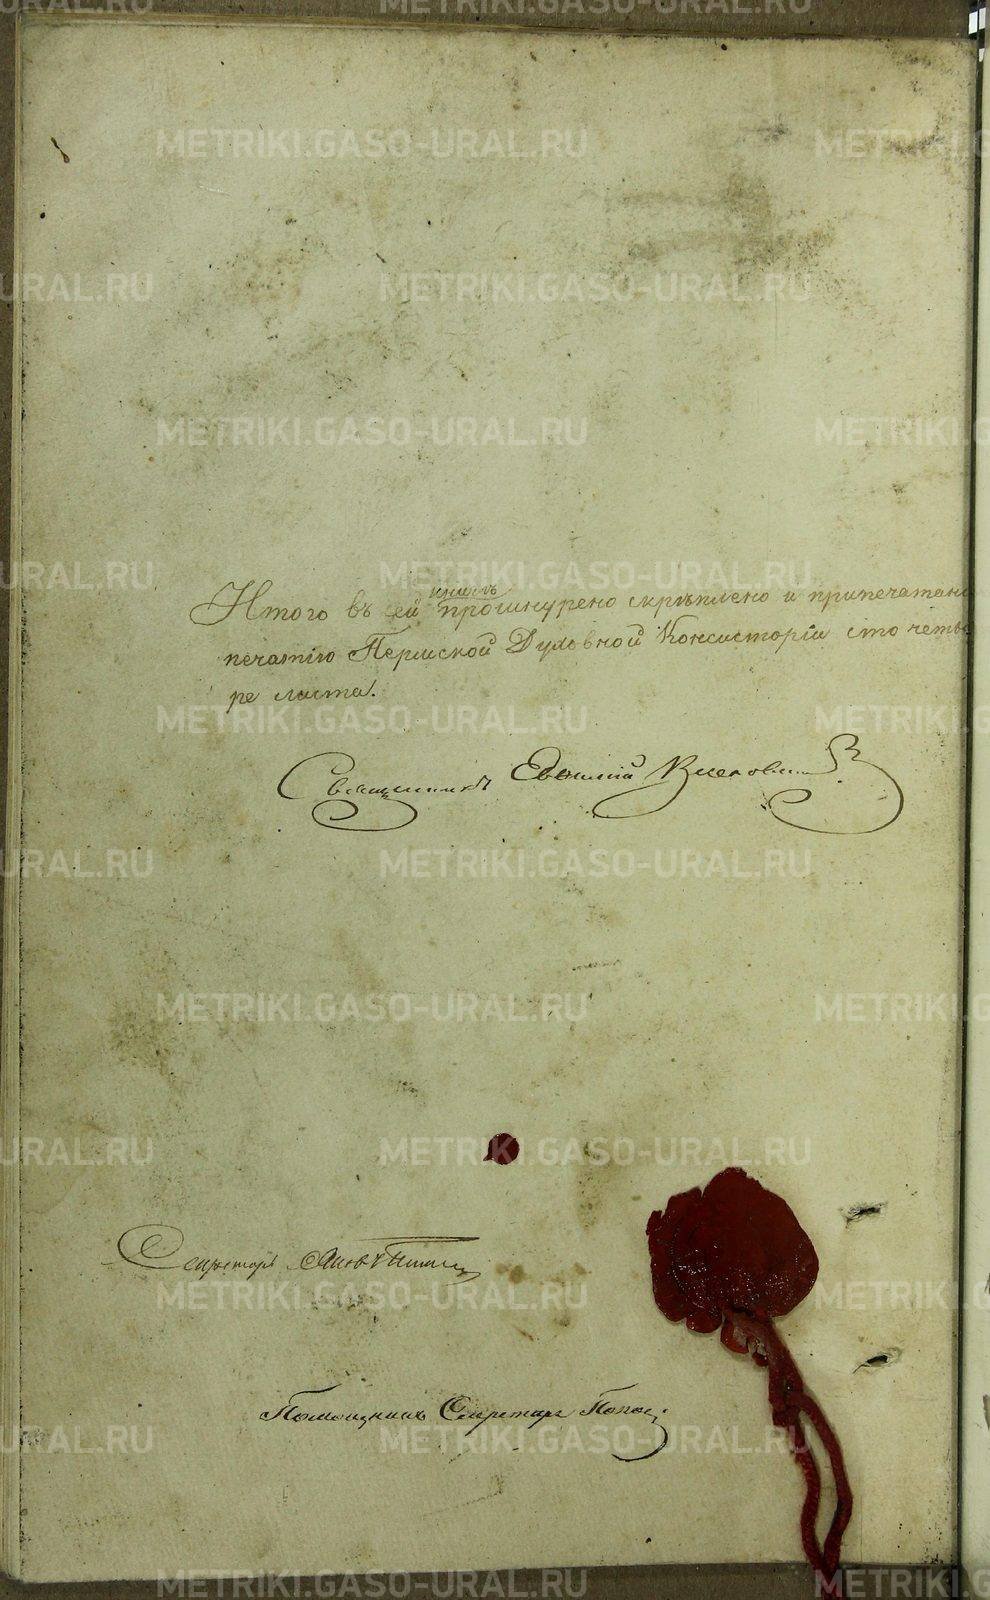 книгѣ
Итого въ сей прошнурено скрѣплено и припечатано
печатію Пермской Духовной Консисторіи сто четы
ре листа.
Священникъ Евѳимій
Секретарь
Помощникъ Секретаря Попов
METRIKI.GASO-URAL.RU